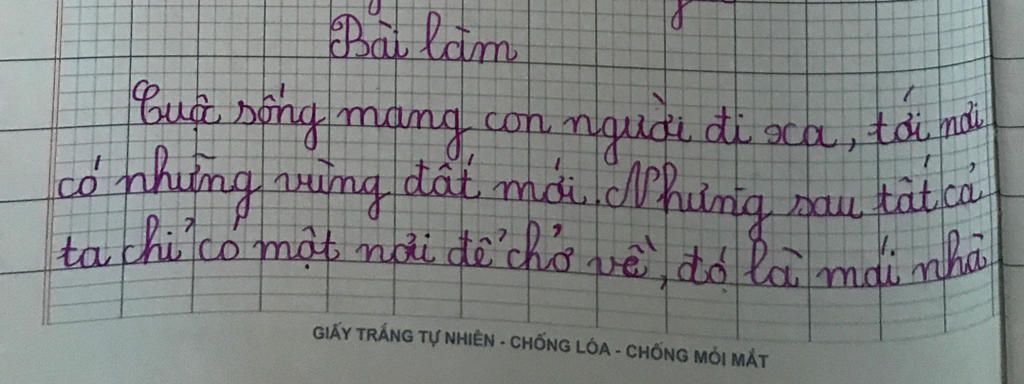 Bài làm
Cuộc sống mang con người đi xa, tới nơi
có những vùng đất mới. Nhưng sau tất cả
ta chỉ có một nơi để chở về, đó là mái nhà
GIẤY TRẮNG TỰ NHIÊN - CHỐNG LÓA - CHỐNG MỎI MẮT